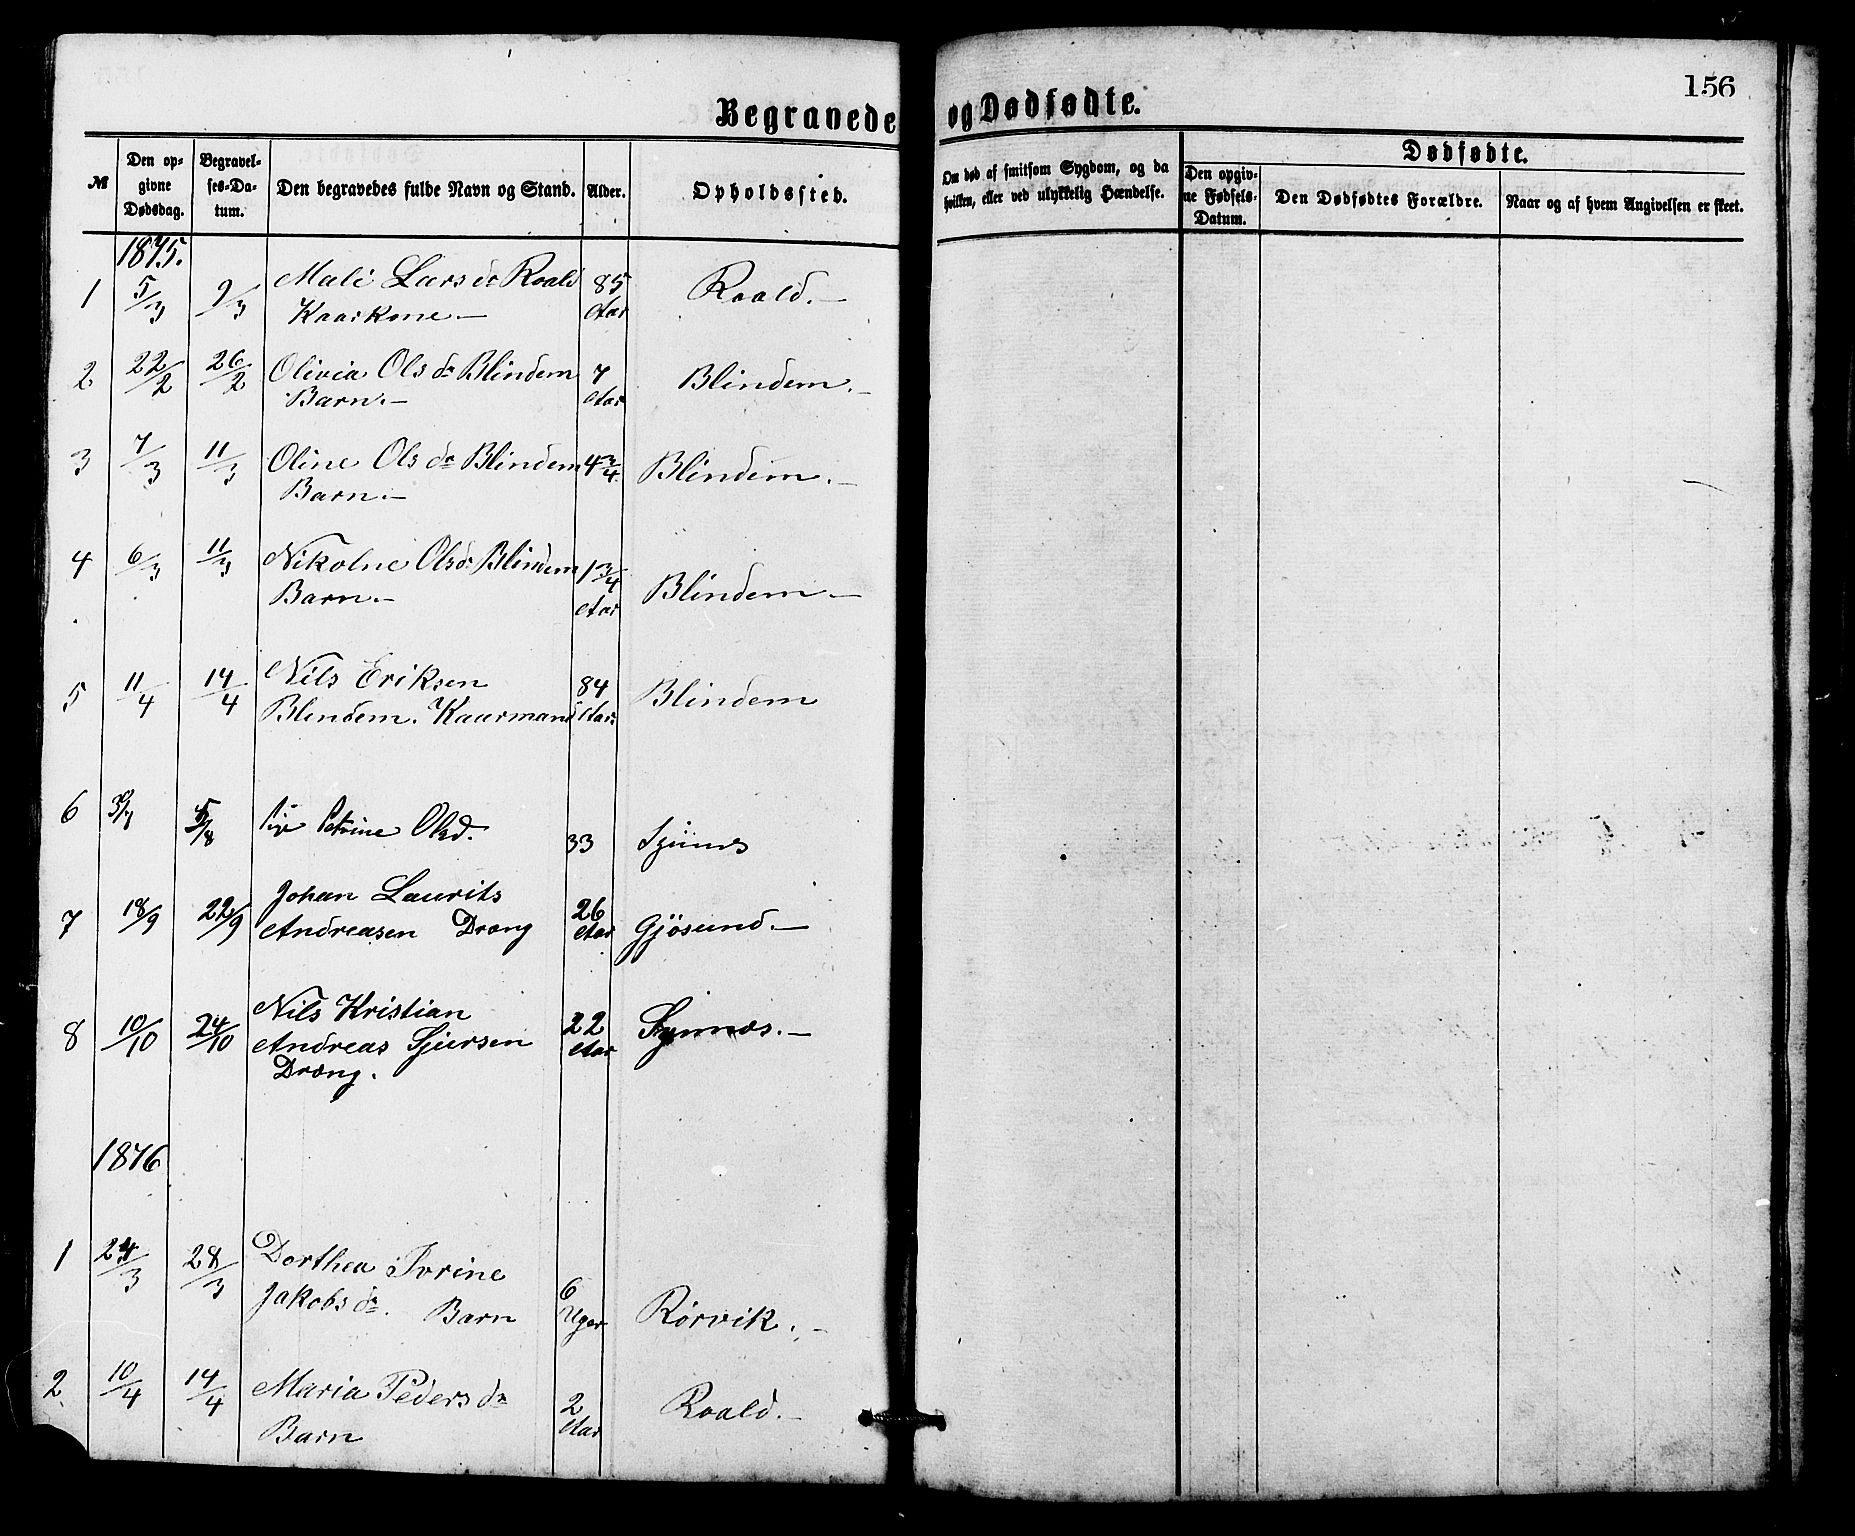 156
Begravede og Dødfødte.
№
Den opgivne Dødsdag.
Begravelses-Datum.
Den begravedes fulde Navn og Stand.
Alder.
Opholdssted.
Om død af smitsom Sygdom, og da hvilken, eller ved ulykkelig Hændelse.
Dødfødte.
Den opgivne Fødsels-Datum.
Den Dødfødtes Forældre.
Naar og af hvem Angivelsen er skeet.
1875.
1 5/3 9/3 Mali Larsdr Roald 85 Roald. —
Kaarkone. — Aar
2 22/2 26/2 Olivia Olsdr Blindem 7 Blindem. —
Barn. — Aar
3 7/3 11/3 Oline Olsdr Blindem 4 3/4 Blindem. —
Barn. —
4 6/3 11/3 Nikoline Olsdr Blindem 1 3/4 Blindem. —
Barn. — Aar
5 11/4 14/4 Nils Eriksen 84 Blindem
Blindem. Kaarmand Aar.
6 5/8 Petrine Olsd. 33
7 18/9 22/9 Johan Laurits 26
Andreasen Dræng Aar Gjøsund. —
8 10/10 24/10 Nils Kristian 22 Synnæs. —
Andreas Sjursen Aar
Dræng.
1876
1 24/3 28/3 Dorthea Ivrine 6
Jakobsdr. Barn Uger Rørvik. —
2. 10/4 14/4 Maria Pedersdr 2 Roald. —
Barn Aar